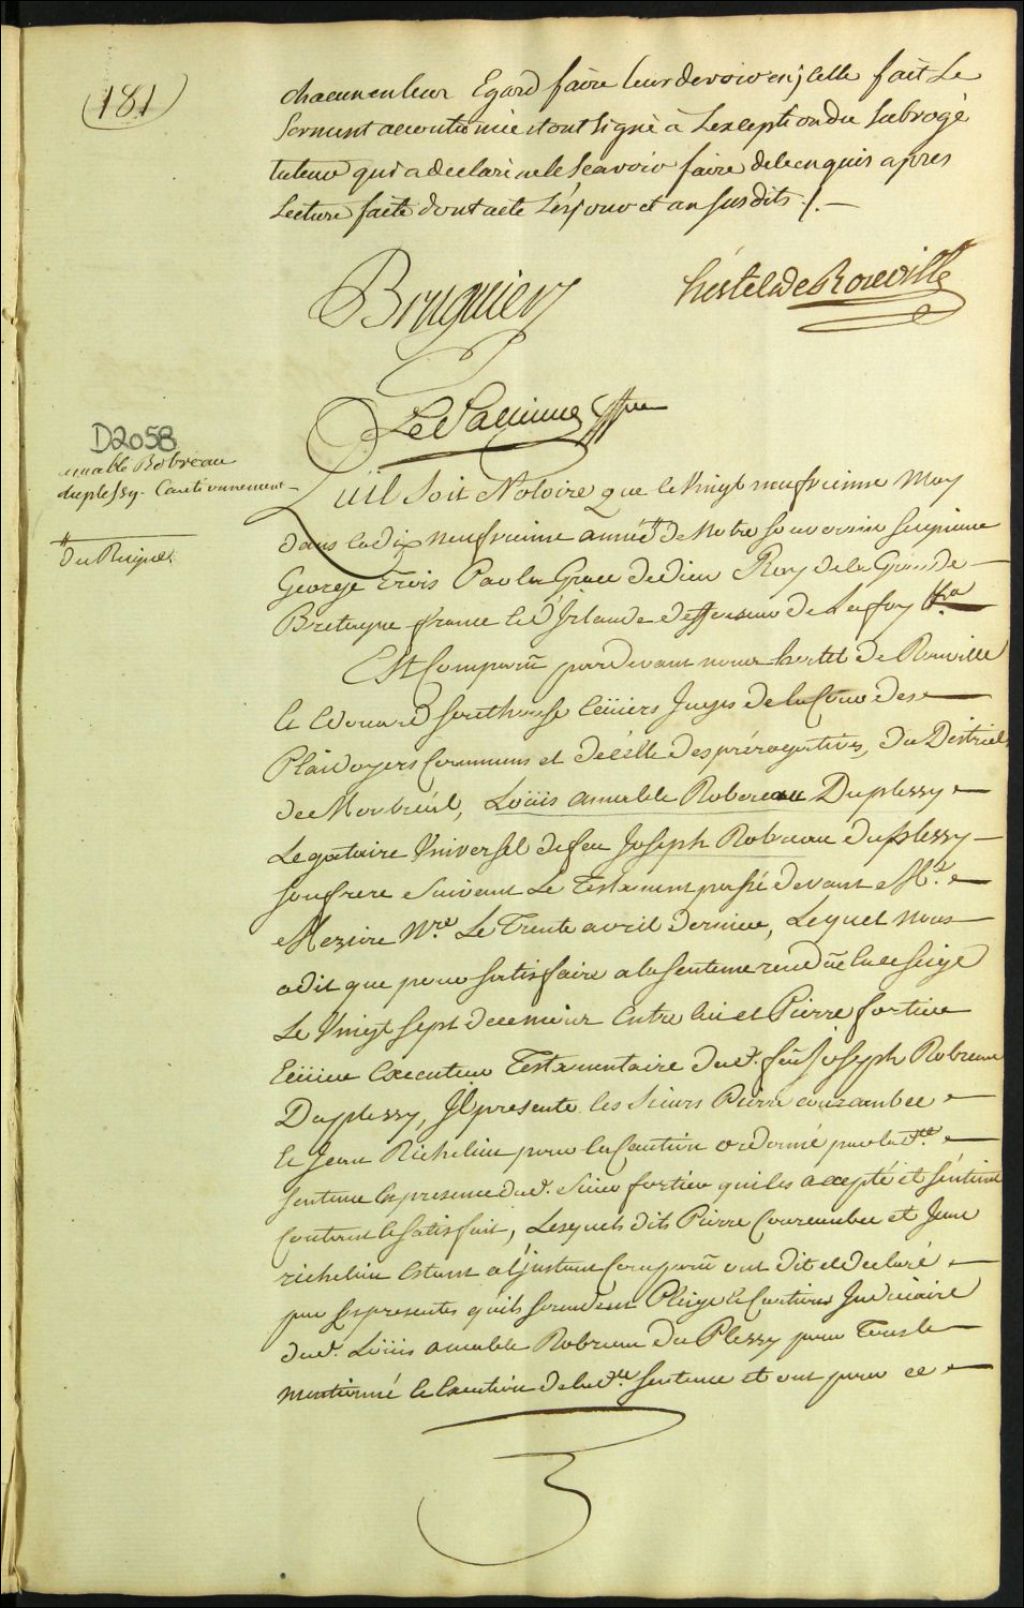 (181)
chacun en leur Egard faire leur devoir en jcelle fait Le
Serment accoutumée et ont Signé à L'exception du Subrogé
tuteur qui a declaré ne le Scavoir faire de ce enquis apres
Lecture faite dont acte Les jour et an Susdits ./.
Bruguier
hertel de Rouville
Le Pallieur Gffier
D2058
amable Robreau
duplessy - Cautionnement
du Reigne
Quil Soit Notoire que le Vingt neufvieme May
dans la dix neufvieme année de Notre Souverain Seigneur
George Trois Par la Grace de dieu Roy de la Grande
Bretagne france et d'Irlande deffenseur de La foy &ra
Est Comparû pardevant nous hertel De Rouville
Et Edouard Southouse Ecuiers Juges de la Cour des
Plaidoyers Communs et de Celle des prérogatives, du District
de Montreal, Loüis amable Robereau Duplessy
Legataire Universel de feu Joseph Robreau duplessy
son frere Suivant Le Testament passé devant Me.
Meziere Nre. Le Trente avril dernier, Lequel nous
a dit que pour Satisfaire a la Sentence rendüe en ce Siege
Le Vingt Sept du Entre lui et Pierre fortier
Ecuier Executeur Testamentaire dud. feu Joseph Robreau
Duplessy, Il presente les Sieurs Pierre courambee
Et Jean Richelieu pour la Caution ordonné par lade.
Sentence En presence dud. Sieur fortier qui les a accepté et s'en tient
Content et Satisfait, Lesquels dits Pierre Courembee et Jean
richelieu Estant a l'instant Comparû ont dit et declaré
par Ces presentes qu'ils Se rendent Pleige et Cautions Judiciaire
dud. Loüis amable Robreau Du Plessy pour Tout le
mentionné Et Execution de lade. Sentence et ont pour ce